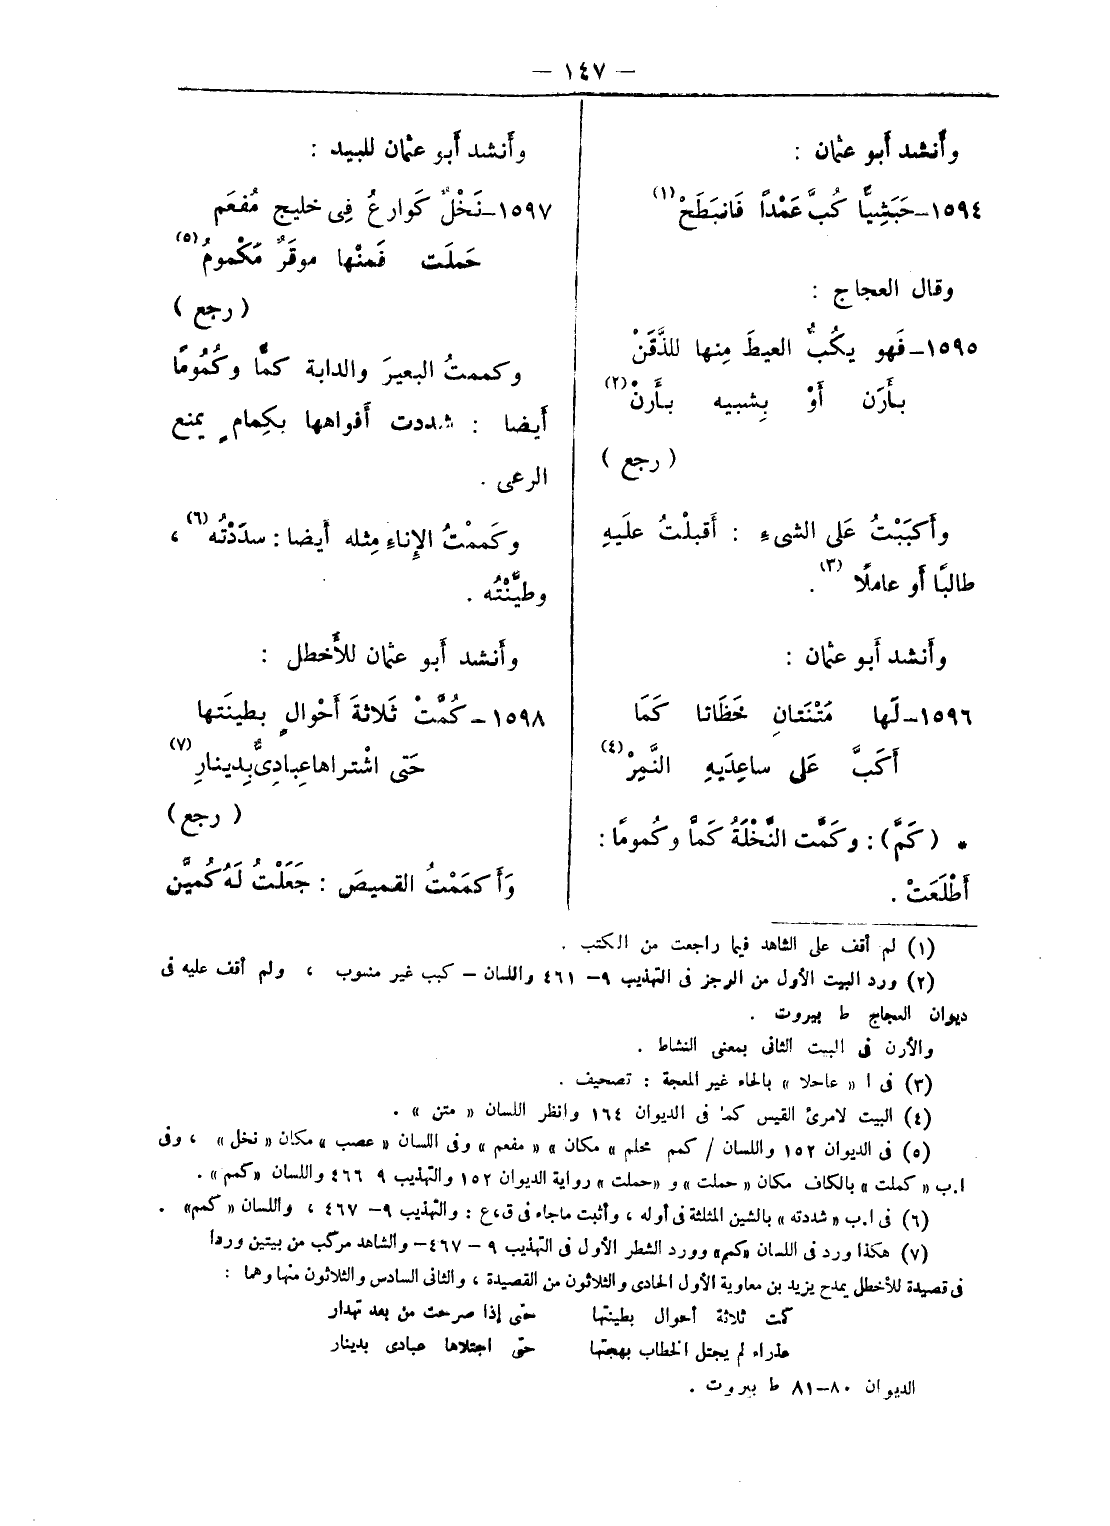 — ١٤٧ —
وأنشد أبو عثمان :
١٥٩٤–حَبَشِيًّا كُبَّ عَمْدًا فَانبَطَحْ (١)
وقال العجاج :
١٥٩٥–فَهو يكُبُّ العيطَ مِنها للذَّقَنْ
بأَرَن أَوْ بِشبيه بأَرنْ (٢)
( رجع )
وأَكبَبْتُ عَلى الشىءِ : أَقبلْتُ علَيهِ
طالبًا أَو عاملًا (٣) .
وأَنشد أَبو عثمان :
١٥٩٦–لَها مَتْنَتانِ خَظَاتا كَمَا
أَكَبَّ عَلى ساعِدَيهِ النَّمِرْ (٤)
* (كَمَّ) : وكَمَّت النَّخْلَةُ كَمًّا وكُمومًا :
أَطْلَعَتْ .
وأَنشد أَبو عثمان للبيد :
١٥٩٧–نَخْلٌ كَوارعُ فِى خليج مُفعَم
حَملَت فَمنْها موقَرٌ مَكْمومُ (٥)
( رجع )
وكممتُ البعيرَ والدابة كمًّا وكُمُومًا
أَيضا : شددت أَفواهها بكِمامٍ يمنع
الرعى .
وكَممْتُ الإِناءِ مِثله أَيضا : سدَدْتُه (٦) ،
وطيَّنْتُه .
وأَنشد أَبو عثمان للأَخطل :
١٥٩٨–كُمَّتْ ثَلاثةَ أَحْوالٍ بطينَتها
حَتى اشْتراها عِبادِىٌّ بِدِينارِ (٧)
( رجع )
وَأَكمَمْتُ القميصَ : جَعَلْتُ لَهُ كُمَيَّن
(١) لم أقف على الشاهد فيما راجعت من الكتب .
(٢) ورد البيت الأول من الرجز فى التهذيب ٩– ٤٦١ واللسان – كبب غير منسوب ، ولم أقف عليه فى
ديوان العجاج ط بيروت .
والأرن فى البيت الثانى بمعنى النشاط .
(٣) فى ا « عاحلا » بالحاء غير المعجمة : تصحيف .
(٤) البيت لامرئ القيس كما فى الديوان ١٦٤ وانظر اللسان « متن » .
(٥) فى الديوان ١٥٢ واللسان / كمم محلم » مكان » « مفعم » وفى اللسان « عصب » مكان « نخل » ، وفى
ا.ب « كملت » بالكاف مكان « حملت » و «حملت » رواية الديوان ١٥٢ والتهذيب ٩ ٤٦٦ واللسان «كمم» .
(٦) فى ا.ب « شددته » بالشين المثلثة فى أوله ، وأثبت ماجاء فى ق،ع : والتهذيب ٩– ٤٦٧ ، واللسان « كمم» .
(٧) هكذا ورد فى اللسان «كم» وورد الشطر الأول فى التهذيب ٩ – ٤٦٧– والشاهد مركب من بيتين وردا
فى قصيدة للأخطل يمدح يزيد بن معاوية الأول الحادى والثلاثون من القصيدة ، والثانى السادس والثلاثون منها وهما :
كمت ثلاثة أحوال بطينتها حتى إذا صرحت من بعد تهدار
عذراء لم يجتل الخطاب بهجتها حتى اجتلاها عبادى بدينار
الديوان ٨٠–٨١ ط بيروت .